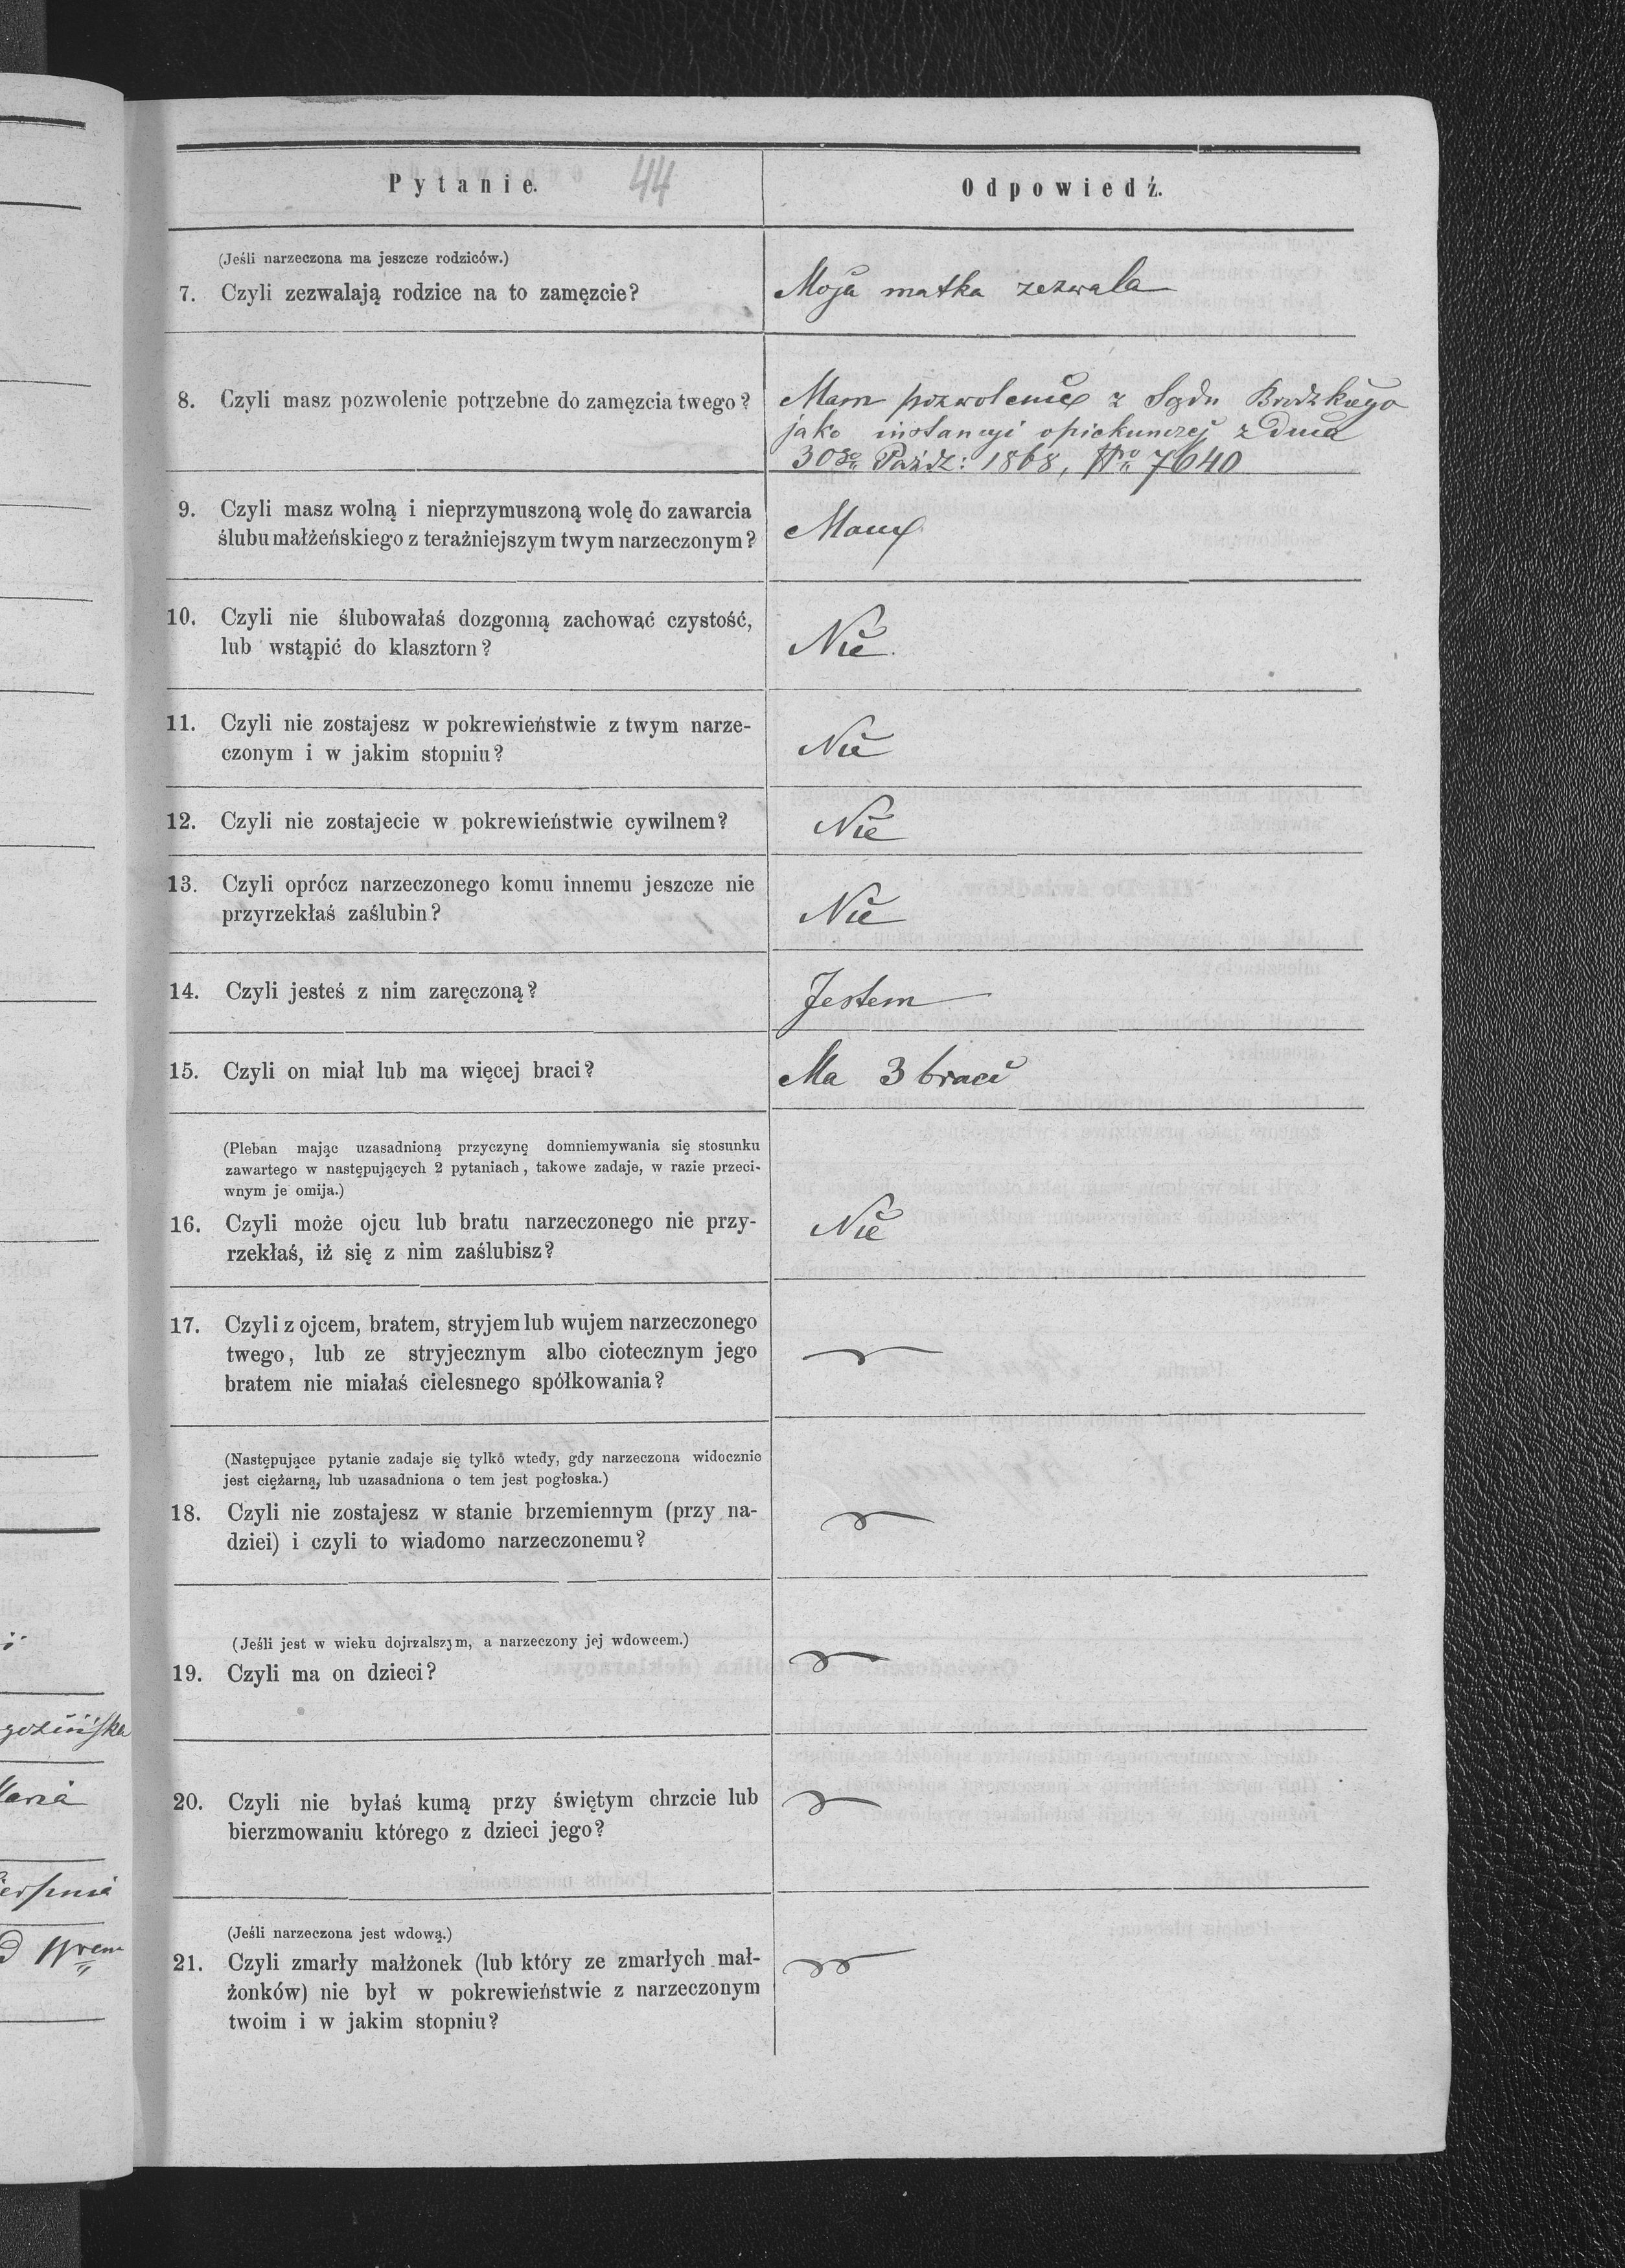 Pytanie.
44
Odpowiedź.
(Jeśli narzeczona ma jeszcze rodziców.)
7. Czyli zezwalają rodzice na to zamęzcie?
Moja matka zezwala
8. Czyli masz pozwolenie potrzebne do zamęzcia twego?
Mam pozwolenie z Sądu Brodzkiego
jako instancyi opiekunczej z dnia
30go Paźdz: 1868, Nro 7640
9. Czyli masz wolną i nieprzymuszoną wolę do zawarcia
ślubu małżeńskiego z teraźniejszym twym narzeczonym?
Mam
10. Czyli nie ślubowałaś dozgonną zachować czystość,
lub wstąpić do klasztorn?
Nie.
11. Czyli nie zostajesz w pokrewieństwie z twym narze-
czonym i w jakim stopniu?
Nie
12. Czyli nie zostajecie w pokrewieństwie cywilnem?
Nie
13. Czyli oprócz narzeczonego komu innemu jeszcze nie
przyrzekłaś zaślubin?
Nie
14. Czyli jesteś z nim zaręczoną?
Jestem
15. Czyli on miał lub ma więcej braci?
Ma 3 braci
(Pleban mając uzasadnioną przyczynę domniemywania się stosunku
zawartego w następujących 2 pytaniach, takowe zadaje, w razie przeci-
wnym je omija.)
16. Czyli może ojcu lub bratu narzeczonego nie przy-
rzekłaś, iż się z nim zaślubisz?
Nie
17. Czyli z ojcem, bratem, stryjem lub wujem narzeczonego
twego, lub ze stryjecznym albo ciotecznym jego
bratem nie miałaś cielesnego spółkowania?
(Następujące pytanie zadaje się tylko wtedy, gdy narzeczona widocznie
jest ciężarną, lub uzasadniona o tem jest pogłoska.)
18. Czyli nie zostajesz w stanie brzemiennym (przy na-
dziei) i czyli to wiadomo narzeczonemu?
(Jeśli jest w wieku dojrzalszym, a narzeczony jej wdowcem.)
19. Czyli ma on dzieci?
20. Czyli nie byłaś kumą przy świętym chrzcie lub
bierzmowaniu którego z dzieci jego?
(Jeśli narzeczona jest wdową.)
21. Czyli zmarły małżonek (lub który ze zmarłych mał-
żonków) nie był w pokrewieństwie z narzeczonym
twoim i w jakim stopniu?